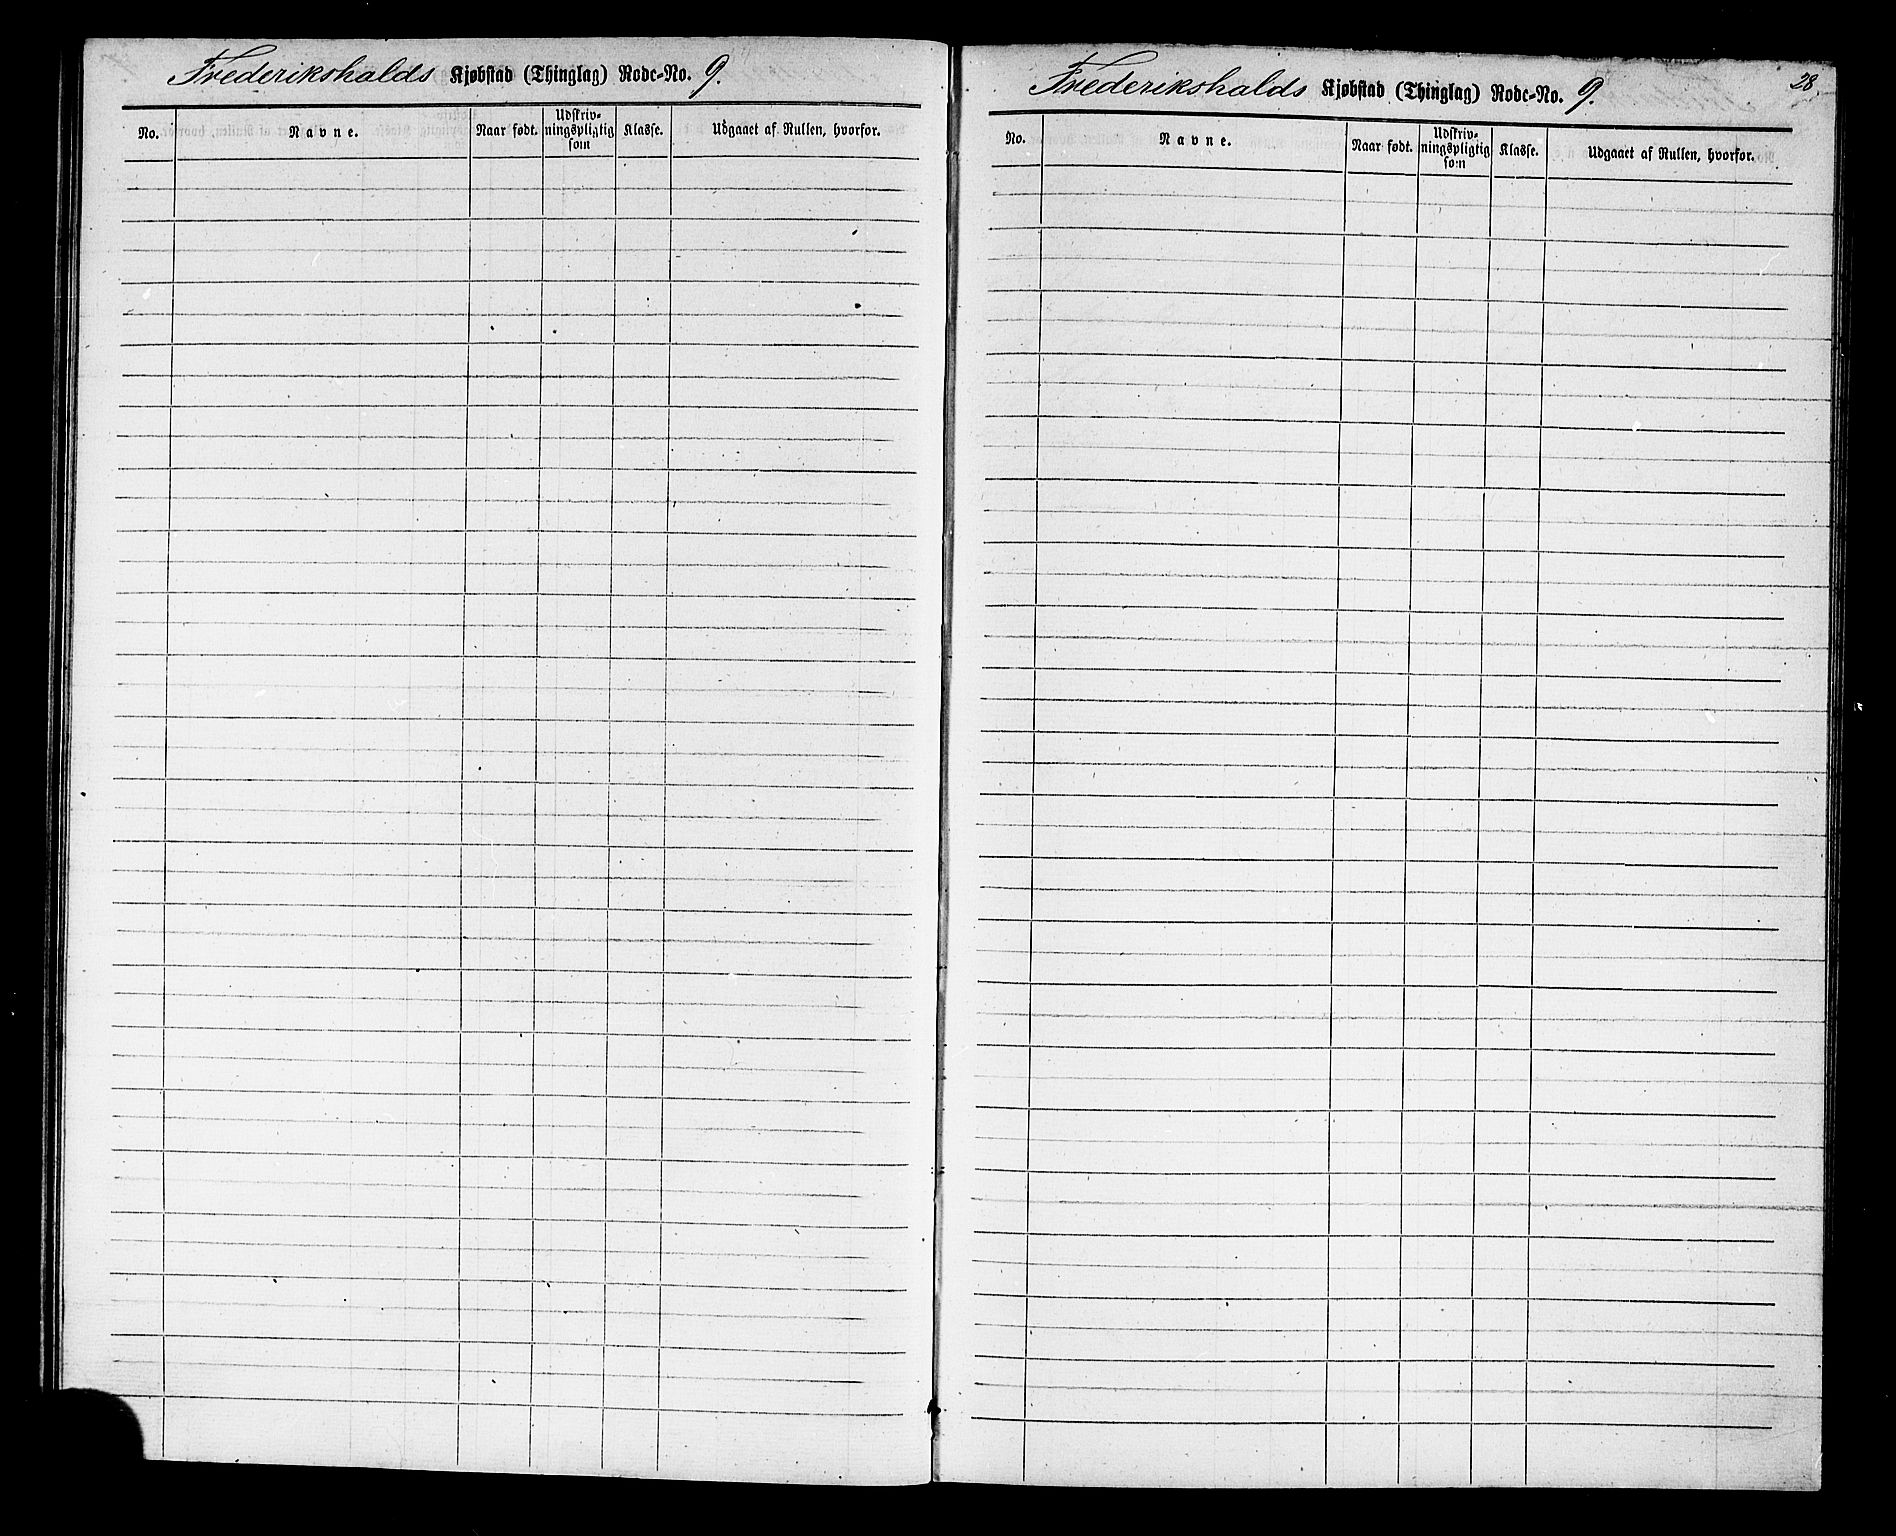 Frederikshalds Kjøbstad (Thinglag) Rode-No. 9.
No. Navne. Naar født. Udskriv-ningspligtig som Klasse. Udgaaet af Rullen, hvorfor.
28
Frederikshalds Kjøbstad (Thinglag) Rode-No. 9.
No. Navne. Naar født. Udskriv-ningspligtig som Klasse. Udgaaet af Rullen, hvorfor.